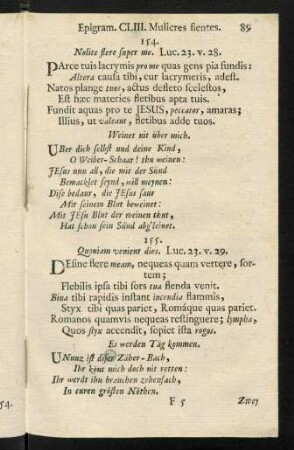 Epigram. CLIII. Mulieres flentes. 89
154.
Nolite flere super me. Luc. 23. v. 28.
PArce tuis lacrymis pro me quas gens pia fundis:
Altera causa tibi, cur lacrymeris, adest.
Natos plange tuos, actus defleto scelestos,
Est hæc materies fletibus apta tuis.
Fundit aquas pro te JESUS, peccator, amaras;
Illius, ut valeant, fletibus adde tuos.
Weinet nit über mich.
UBer dich selbst und deine Kind,
O Weiber-Schaar! thu weinen:
JEsus nun all, die mit der Sünd
Bemacklet seynd, will meynen:
Dise bedaur, die JEsus saur
Mit seinem Blut beweinet:
Mit JEsu Blut der weinen thut,
Hat schon sein Sünd abg'leinet.
155.
Quoniam venient dies. Luc. 23. v. 29.
DEsine flere meam, nequeas quam vertere, sortem;
Flebilis ipsa tibi sors tua flenda venit.
Bina tibi rapidis instant incendia flammis,
Styx tibi quas pariet, Romáque quas pariet.
Romanos quamvis nequeas restinguere; lympha,
Quos styx accendit, sopiet ista rogos.
Es werden Täg kommen.
UNnuz ist diser Zäher-Bach,
Ihr könt mich doch nit retten:
Ihr werdt ihn brauchen zehenfach,
In euren grösten Nöthen.
F 5 Zwey
54.